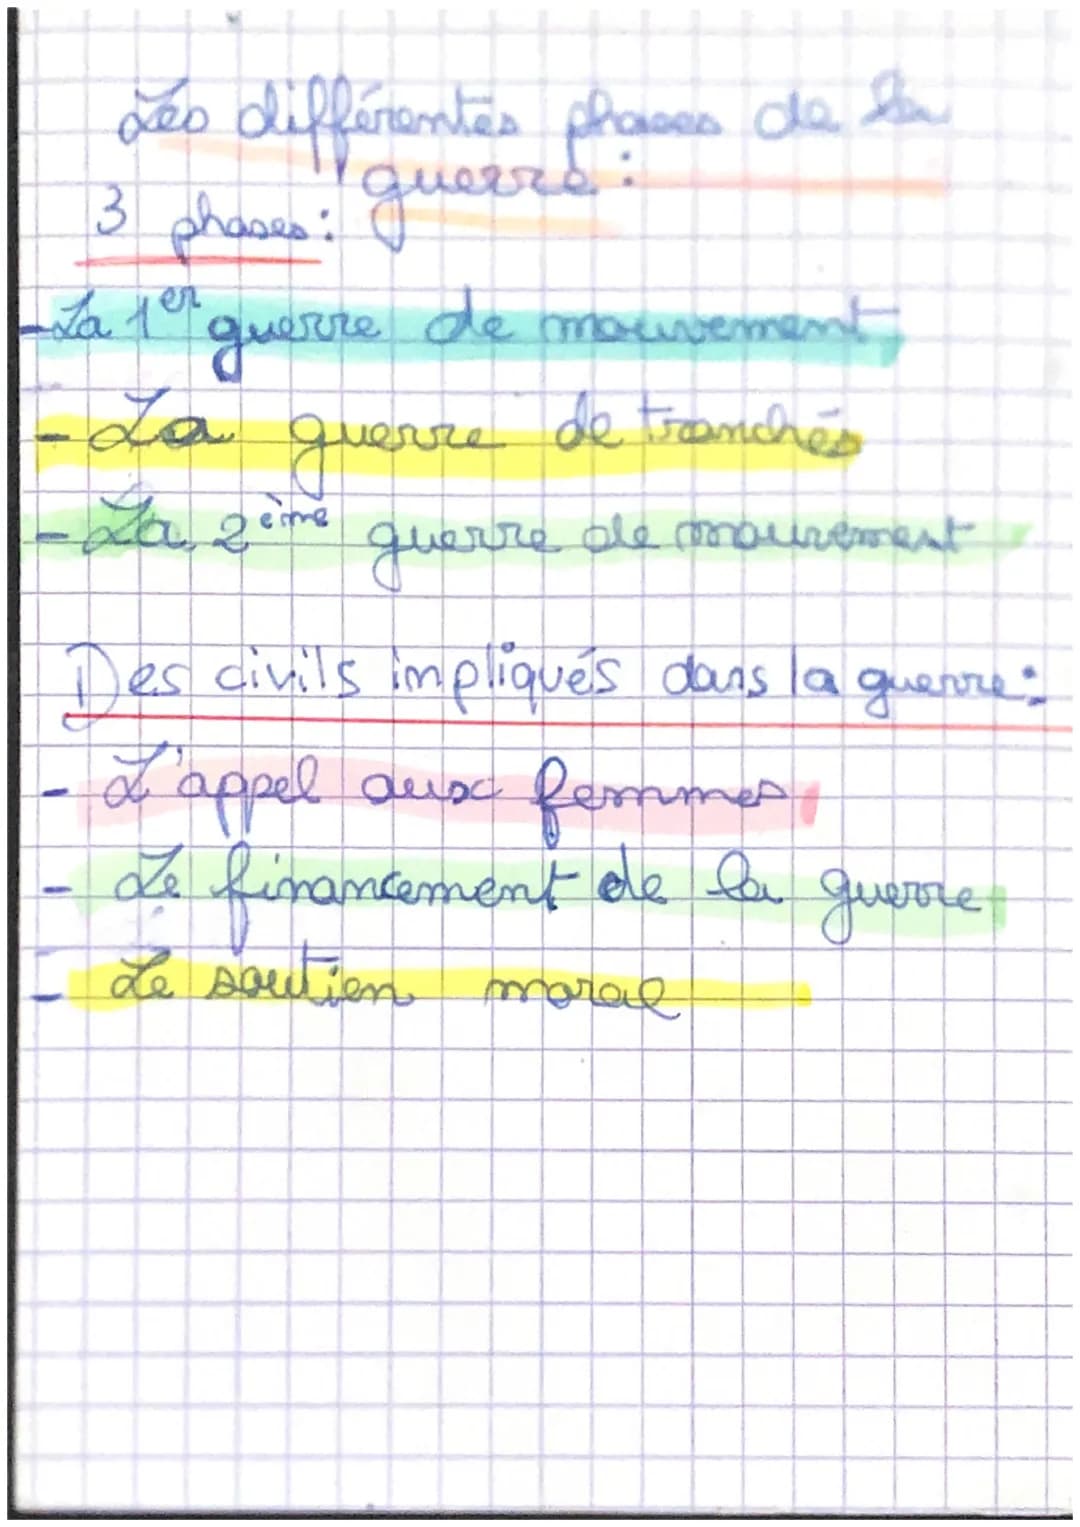 Les différentes phases de la
guerre :
3 phases :
- La 1er guerre de mouvement
- La guerre de tranchés
- La 2ème guerre de mouvement
Des civils impliqués dans la guerre :
- L'appel aux femmes
- Le financement de la guerre
- Le soutien moral